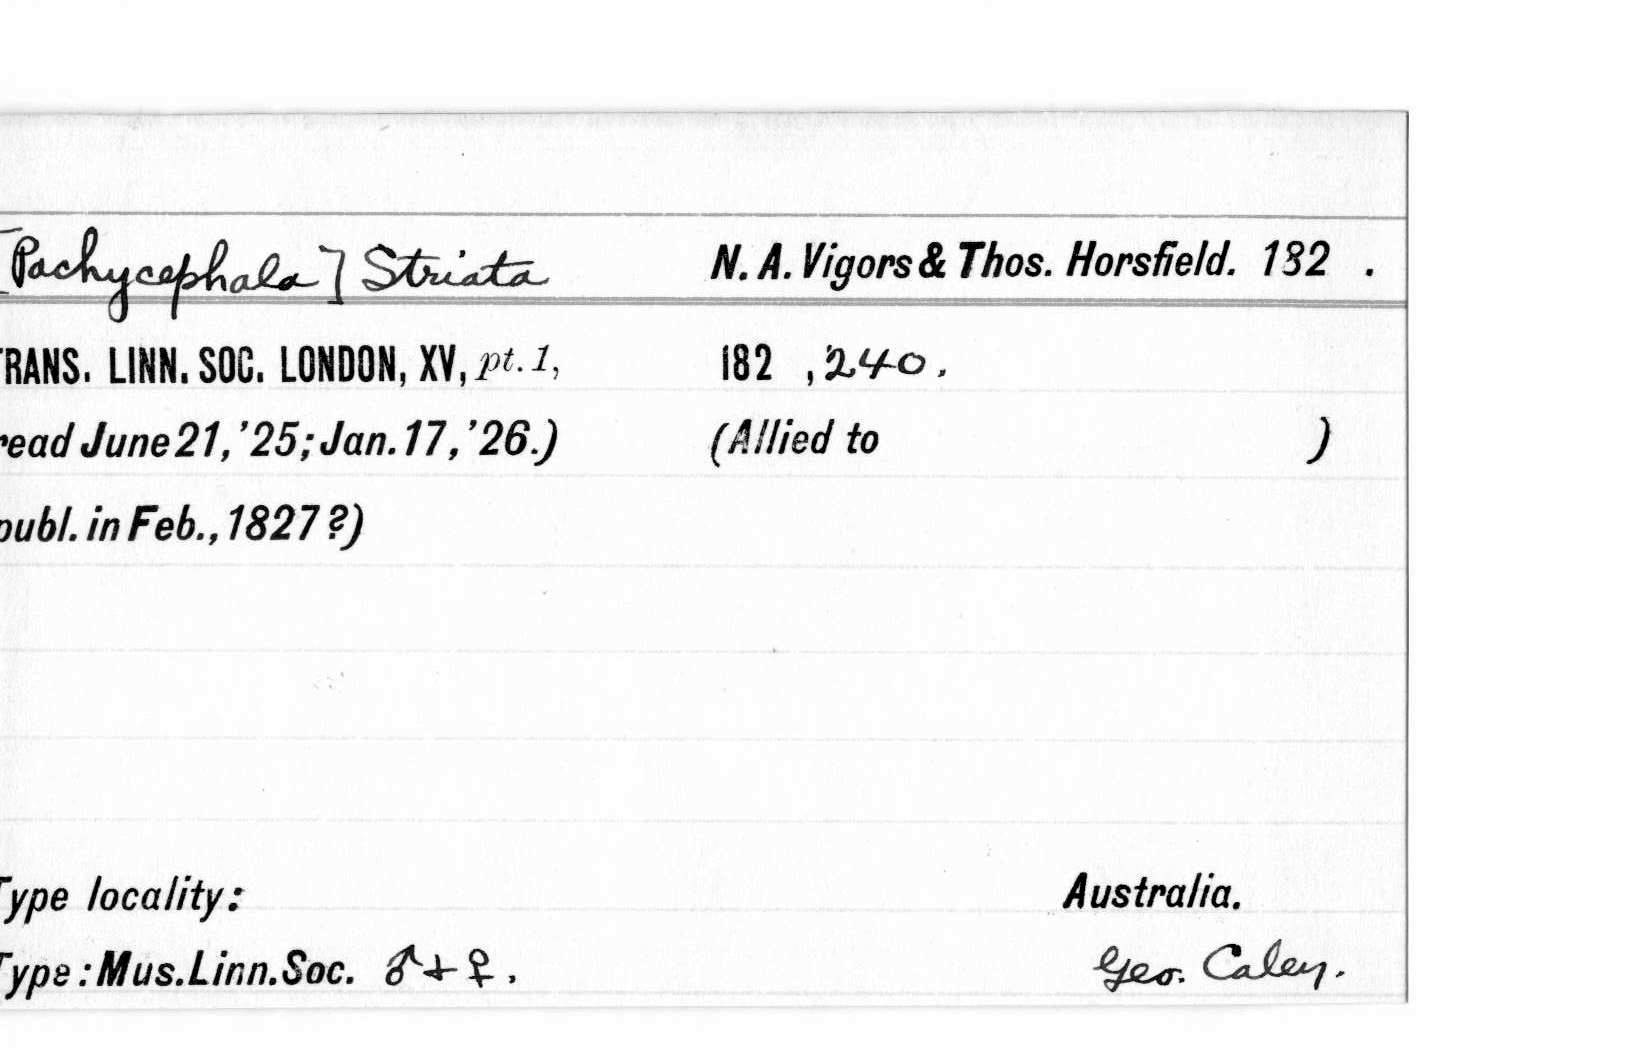 [Pachycephala] Striata N. A. Vigors & Thos. Horsfield. 182 .
TRANS. LINN. SOC. LONDON, XV, pt. 1, 182 , 240.
read June 21, '25; Jan. 17, '26.) (Allied to )
publ. in Feb., 1827?)
Type locality: Australia.
Type: Mus. Linn. Soc. ♂ + ♀. Geo. Caley.